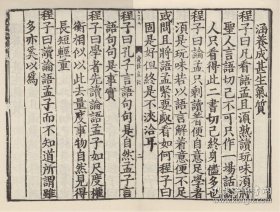 涵養成甚生氣質
程子曰凡看語孟且須熟讀玩味須將
聖人言語切己不可只作一場話說
人只看得此二書切己終身儘多也
程子曰論孟只剩讀著便自意足學者
須是玩味若以語言解著意便不足
或問且將語孟緊要處看如何程子曰
固是好但終是不浹洽耳
程子曰孔子言語句句是自然孟子言
語句句是事實
程子曰學者先讀論語孟子如尺度權
衡相似以此去量度事物自然見得
長短輕重
程子曰讀論語孟子而不知道所謂雖
多亦奚以爲